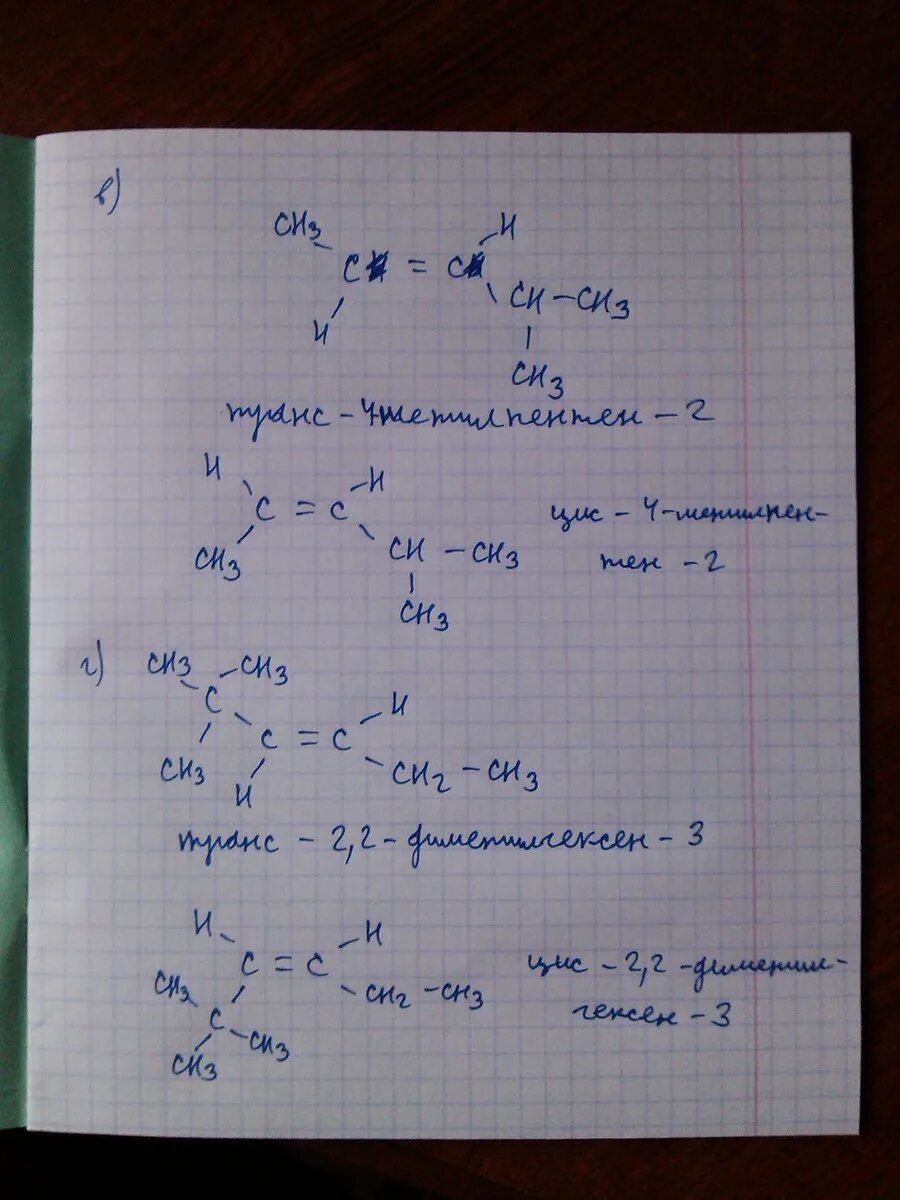 в)
CH3 H
C = C
H CH–CH3
CH3
транс – 4метилпентен – 2
H H
C = C
CH3 CH – CH3
CH3
цис – 4-метилпен-
тен – 2
г) CH3 CH3
C H
C = C
CH3 H CH2 – CH3
транс – 2,2 – диметилгексен – 3
H H
C = C
CH3 CH2 – CH3
C
CH3 CH3
цис – 2,2 – диметил-
гексен – 3